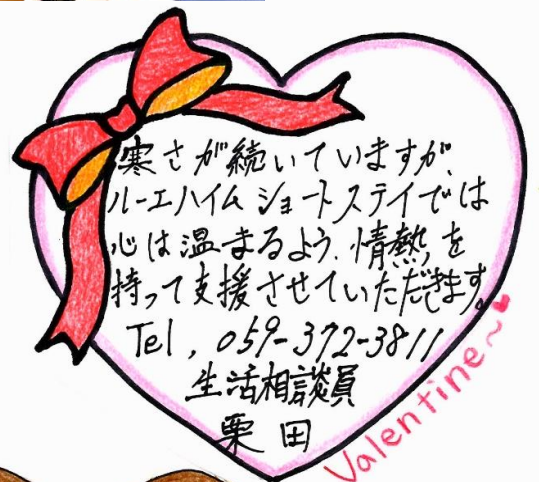 寒さが続いていますが、
ルーエハイムショートステイでは
心は温まるよう、情熱を
持って支援させていただきます。
Tel, 059-372-3811
生活相談員
栗田
Valentine～♥